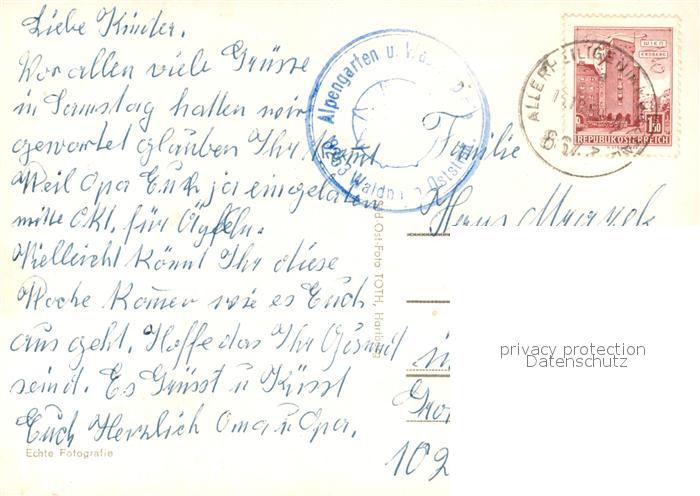 Liebe Kinder.
Vor allen viele Grüsse
in Samstag hatten wir
gewartet glauben Ihr kommt
Weil Opa Euch ja eingeladen
mitte Okt. für Äpfeln.
Vielleicht könnt Ihr diese
Woche komen wie es Euch
aus geht. Hoffe das Ihr Gesund
seind. Es Grüsst u Küsst
Euch Herzlich Oma u Opa.
Echte Fotografie
Alpengarten u.
Waldh
Oststm.
Süd-Ost-Foto TOTH, Hartberg
ALLERHEILIGEN
WIEN
ERDBERG
1.50
REPUBLIK ÖSTERREICH
Familie
Hans
in
102
privacy protection
Datenschutz